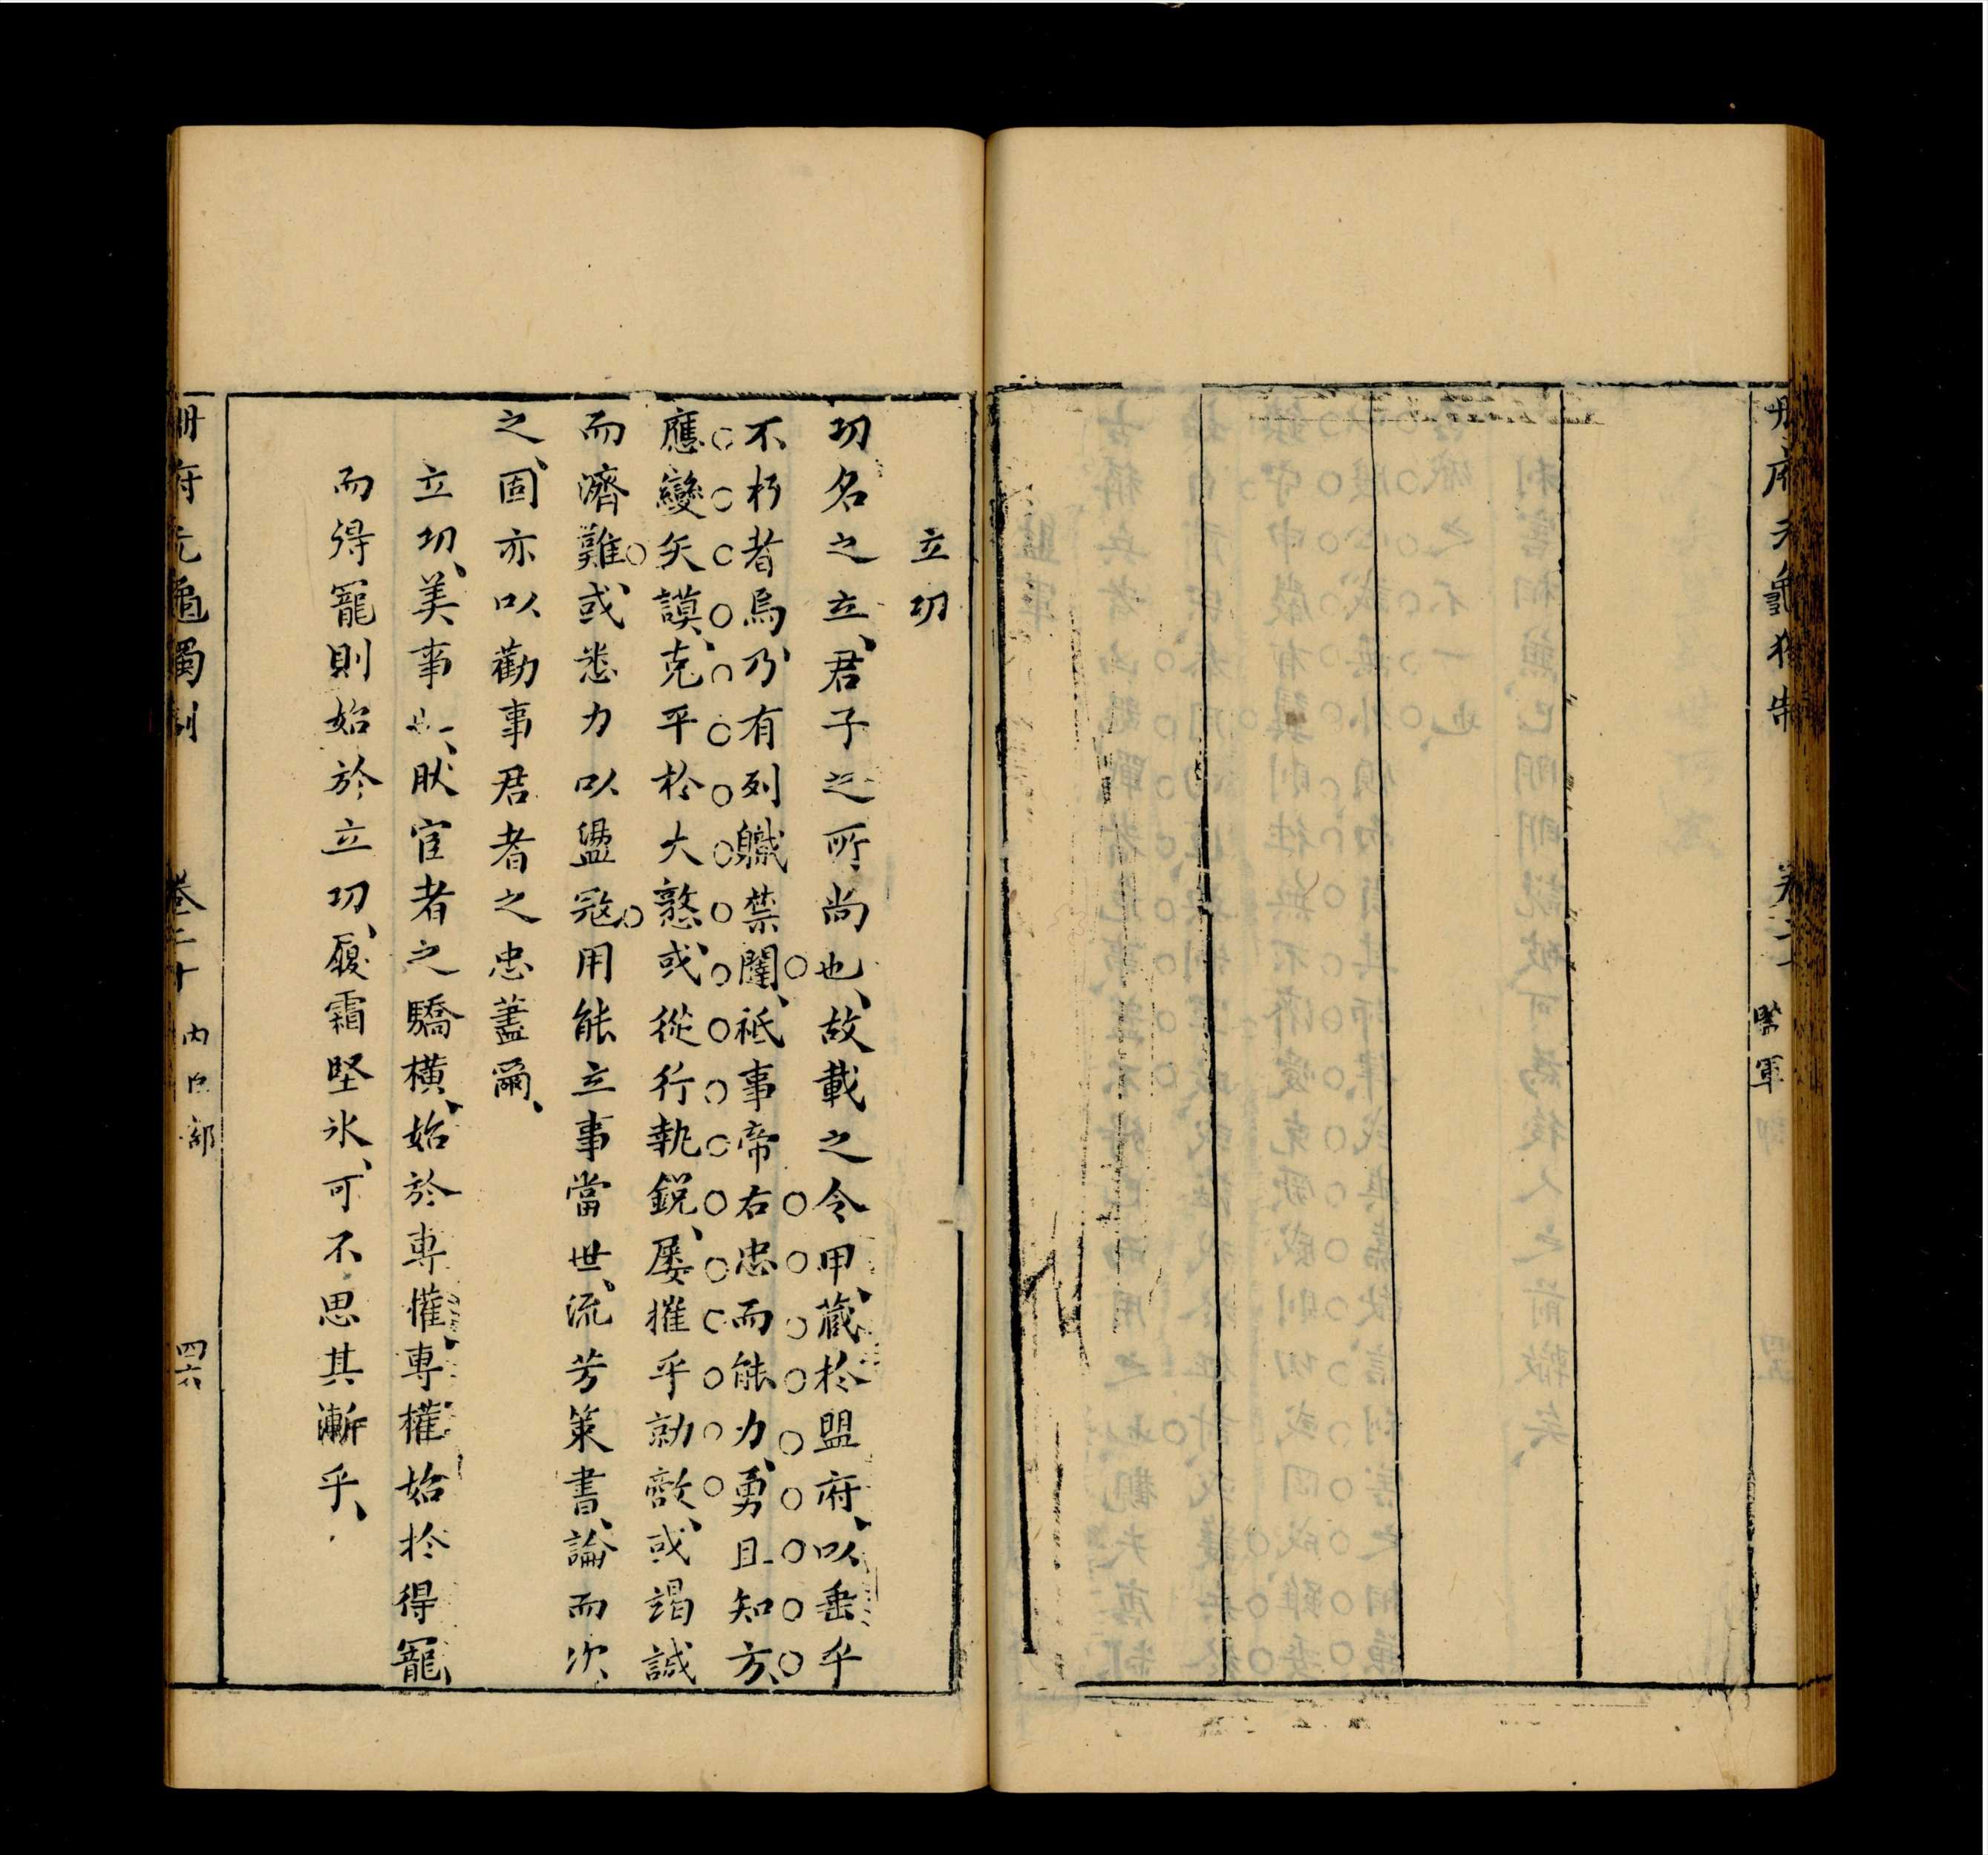 冊府元龜獨制
卷二十
監軍
立功
功名之立、君子之所尚也、故載之令甲、藏於盟府、以垂乎
不朽者焉、乃有列職禁闥、祗事帝右、忠而能力、勇且知方、
應變矢謨、克平於大憝、或從行執銳、屡摧乎勍敵、或竭誠
而濟難、或悉力以盪寇、用能立事當世、流芳策書、論而次
之、固亦以勸事君者之忠藎爾、
立功、美事也、肰宦者之驕橫、始於專權、專權始於得寵、
而得寵則始於立功、履霜堅氷、可不思其漸乎、
冊府元龜獨制
卷二十
內臣部
四六